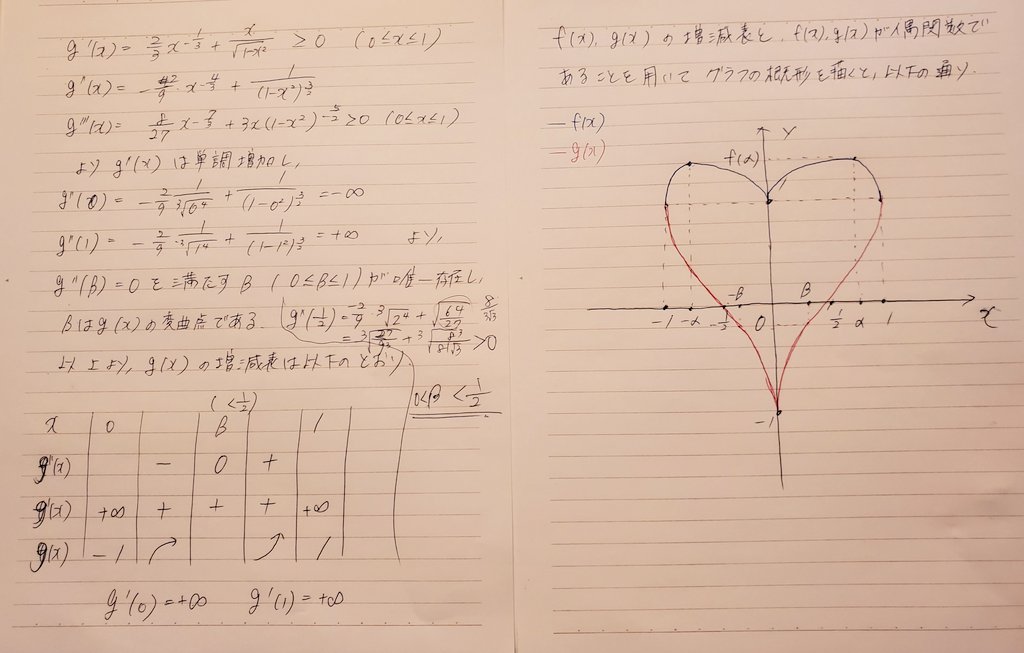 g'(x) = 2/3 x^{-1/3} + x/√(1-x²) ≥ 0 (0≤x≤1)
g''(x) = -2/9・x^{-4/3} + 1/(1-x²)^{3/2}
g'''(x) = 8/27 x^{-7/3} + 3x(1-x²)^{-5/2} ≥ 0 (0≤x≤1)
より g''(x) は単調増加し,
g''(0) = -2/9 1/³√0⁴ + 1/(1-0²)^{3/2} = -∞
g''(1) = -2/9・1/³√1⁴ + 1/(1-1²)^{3/2} = +∞ より,
g''(β) = 0 を満たす β (0≤β≤1) が唯一存在し,
βは g(x) の変曲点である.
g''(1/2) = -2/9・³√2⁴ + √(64/27) 8/3√3
> 0
以上より, g(x) の増減表は以下のとおり
0<β<1/2
(<1/2)
x 0 β 1
g''(x) - 0 +
g'(x) +∞ + + + +∞
g(x) -1 1
g'(0) = +∞ g'(1) = +∞
f(x), g(x) の増減表と, f(x), g(x) が偶関数で
あることを用いて グラフの概形を描くと, 以下の通り.
— f(x)
— g(x)
y
f(α)
-1 -α -1/2 -β 0 β 1/2 α 1 x
-1